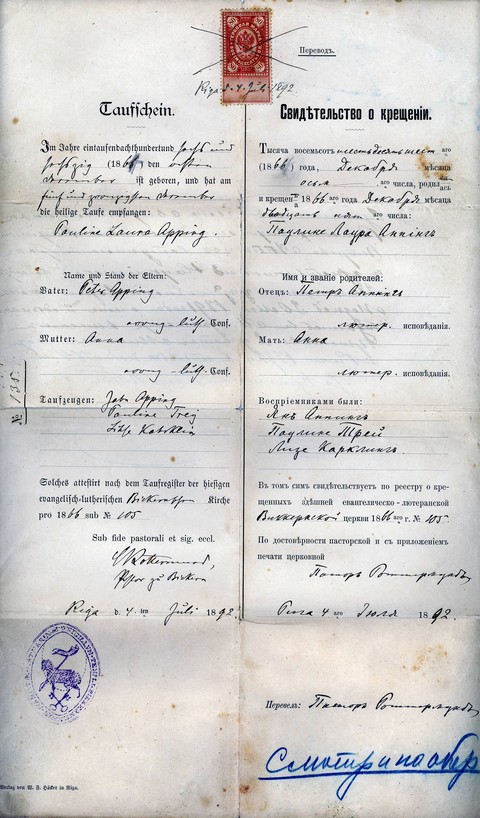 Переводъ.
Riga d. 4. Juli 1892.
Taufschein.
Im Jahre eintausendachthundertund sechs und
sechszig (1866) den achten
December ist geboren, und hat am
fünf und zwanzigsten December
die heilige Taufe empfangen:
Pauline Laura Apping.
Name und Stand der Eltern:
Vater: Peter Apping
evang-luth Conf.
Mutter: Anna
evang-luth. Conf.
Taufzeugen: Jahn Apping
Pauline Trej
Lihse
Solches attestirt nach dem Taufregister der hiesigen
evangelisch-lutherischen Bickernschen Kirche
pro 1866 sub № 105
Sub fide pastorali et sig. eccl.
Pastor zu Bickern
Riga d. 4 ten Juli 1892.
№ 135.
Verlag von W. F. Häcker in Riga.
Свидѣтельство о крещеніи.
Тысяча восемьсотъ шестьдесятъ шест аго
(1866) года, Декабря мѣсяца
осьм аго числа, родилась
и крещена 1866 аго года Декабря мѣсяца
двадцать пят аго числа:
Паулине Лаура Аппингъ
Имя и званіе родителей:
Отецъ: Петръ Аппингъ
лютер. исповѣданія.
Мать: Анна
лютер. исповѣданія.
Воспріемниками были:
Янъ Аппингъ
Паулине Трей
Лизе Карклингъ
Въ томъ симъ свидѣтельствуетъ по реестру о кре-
щенныхъ здѣшней евангелическо-лютеранской
Биккернской церкви 1866 аго г. № 105.
По достовѣрности пасторской и съ приложеніемъ
печати церковной
Пасторъ
Рига 4 аго Іюля 1892.
Перевелъ: Пасторъ
Смотри на обор